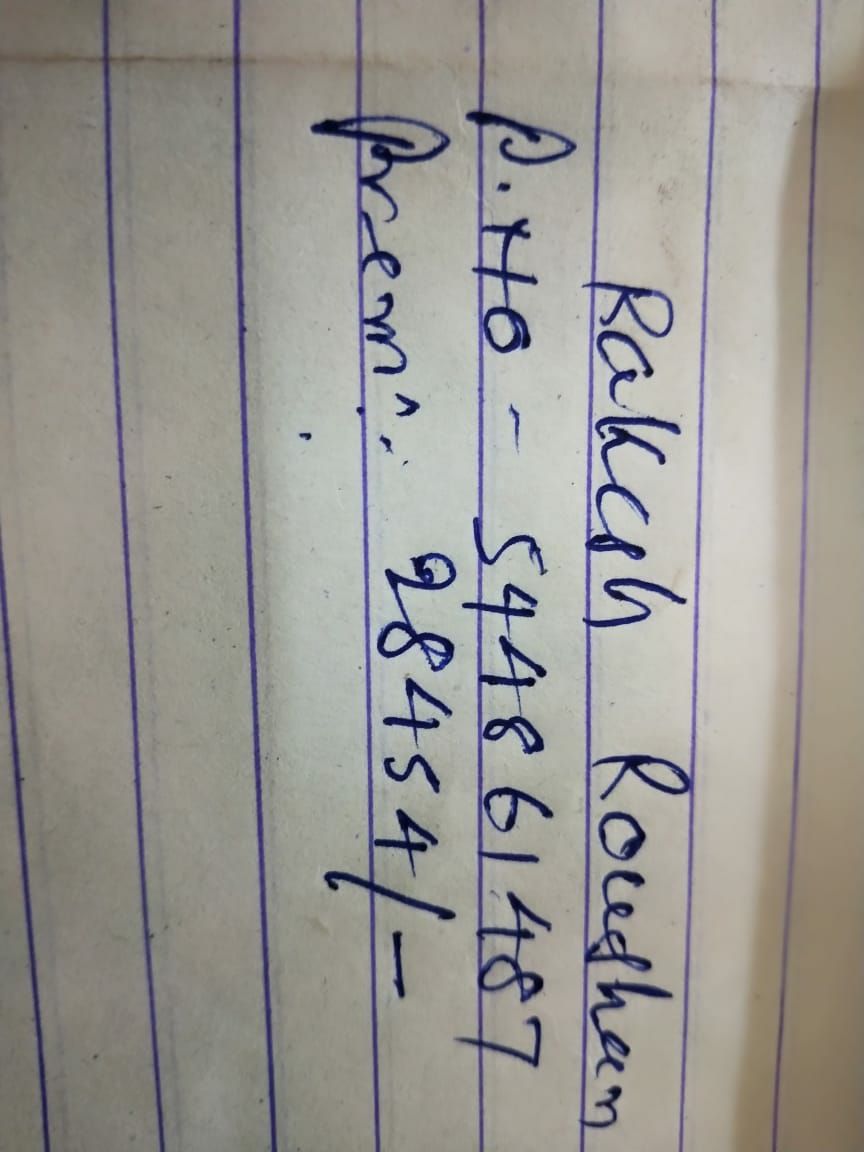 Rakesh Roushan
P. No - 544861487
Prem^n: 28454/-